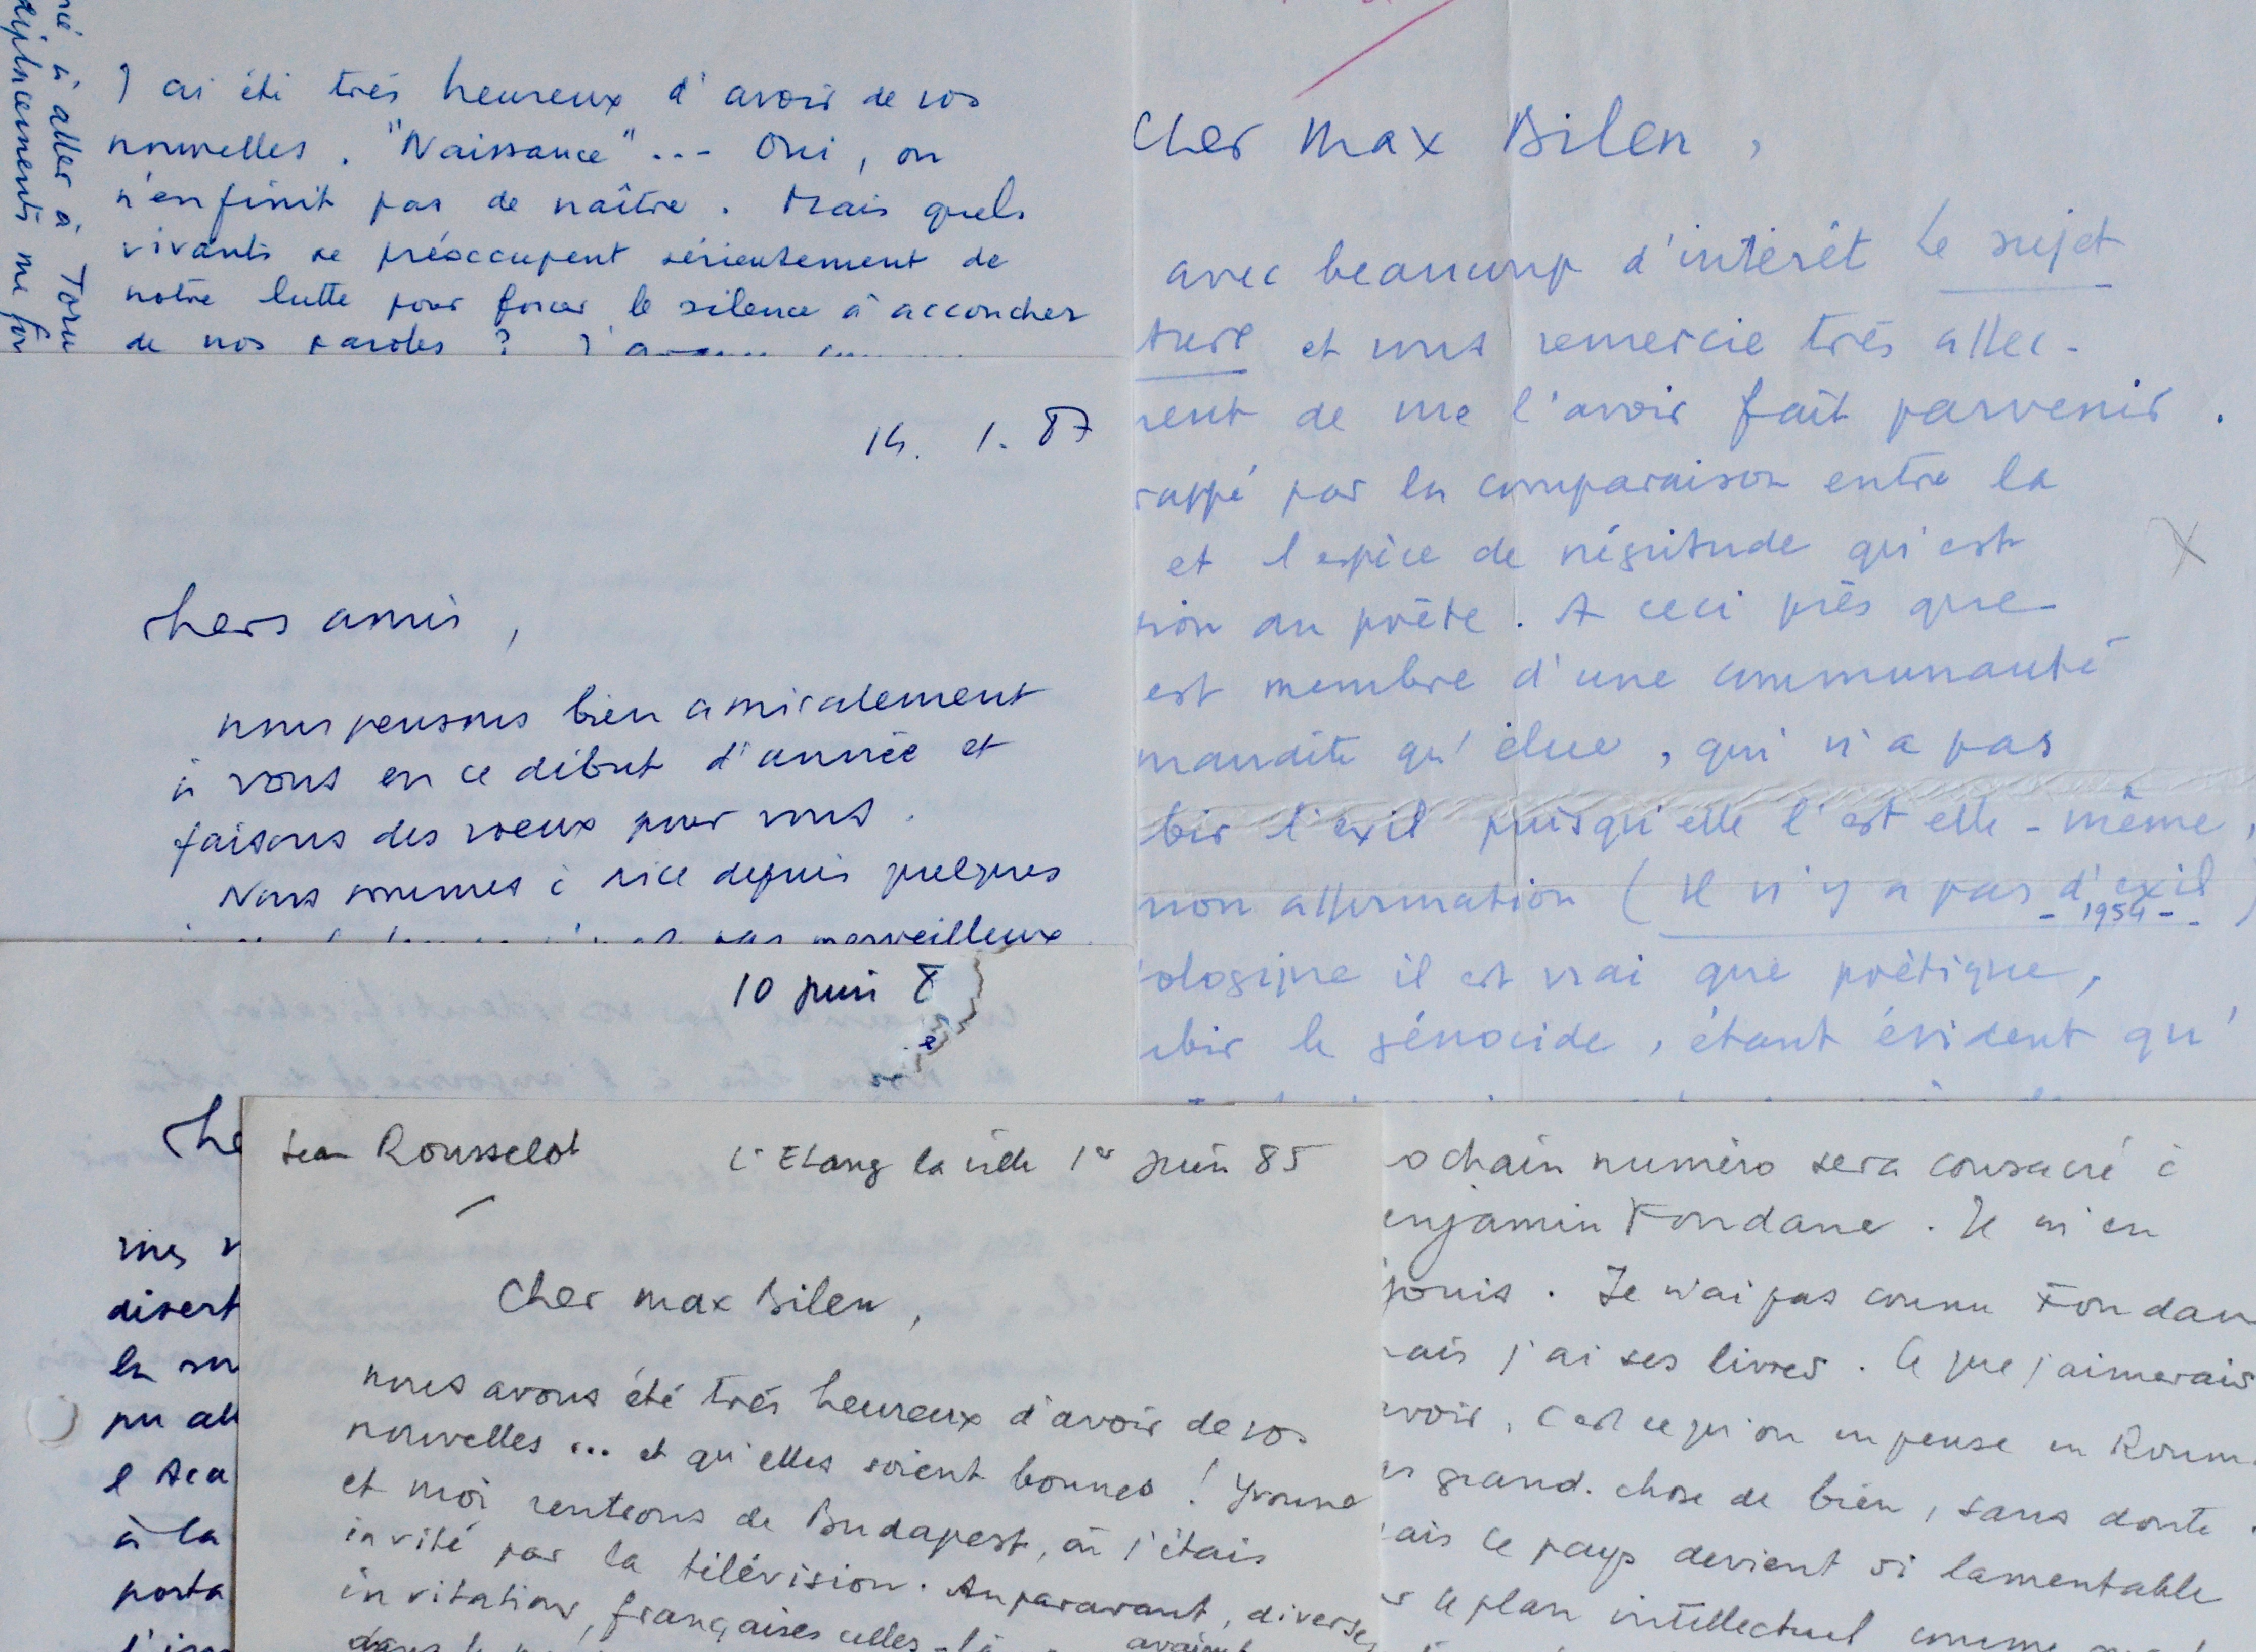 né à aller à Toru
déplacements me for
J'ai été très heureux d'avoir de vos
nouvelles. "Naissance"... Oui, on
n'en finit pas de naître. Mais quels
vivants se préoccupent sérieusement de
notre lutte pour forcer le silence à accoucher
de nos paroles ?
14. 1. 87
Chers amis,
nous pensons bien amicalement
à vous en ce début d'année et
faisons des voeux pour vous.
Nous sommes à Nice depuis quelques
pas merveilleux
10 juin 8
Che
mes
disert
la
pu all
à la
porta
Cher Max Bilen,
avec beaucoup d'intérêt Le sujet
ture et vous remercie très affec-
ment de me l'avoir fait parvenir.
rappé par la comparaison entre la
et l'espèce de négritude qu'est
tion du poète. A ceci près que
est membre d'une communauté
maudite qu'élue, qui n'a pas
bir l'exil puisqu'elle l'est elle-même,
mon affirmation (Il n'y a pas d'exil)
- 1954 -
ologique il est vrai que poétique,
ubir le génocide, étant évident qu'
Jean Rousselot
L'Etang la ville 1er juin 85
Cher Max Bilen,
nous avons été très heureux d'avoir de vos
nouvelles... et qu'elles soient bonnes ! Yvonne
et moi rentrons de Budapest, où j'étais
invité par la télévision. Auparavant, diverses
invitations, françaises celles-là, avaient
ochain numéro sera consacré à
enjamin Fondane. Je m'en
jouis. Je n'ai pas connu Fondan
ais j'ai ses livres. Ce que j'aimerais
avoir, c'est ce qu'on en pense en Roum
as grand. chose de bien, sans doute.
ais ce pays devient si lamentable
r le plan intellectuel comme